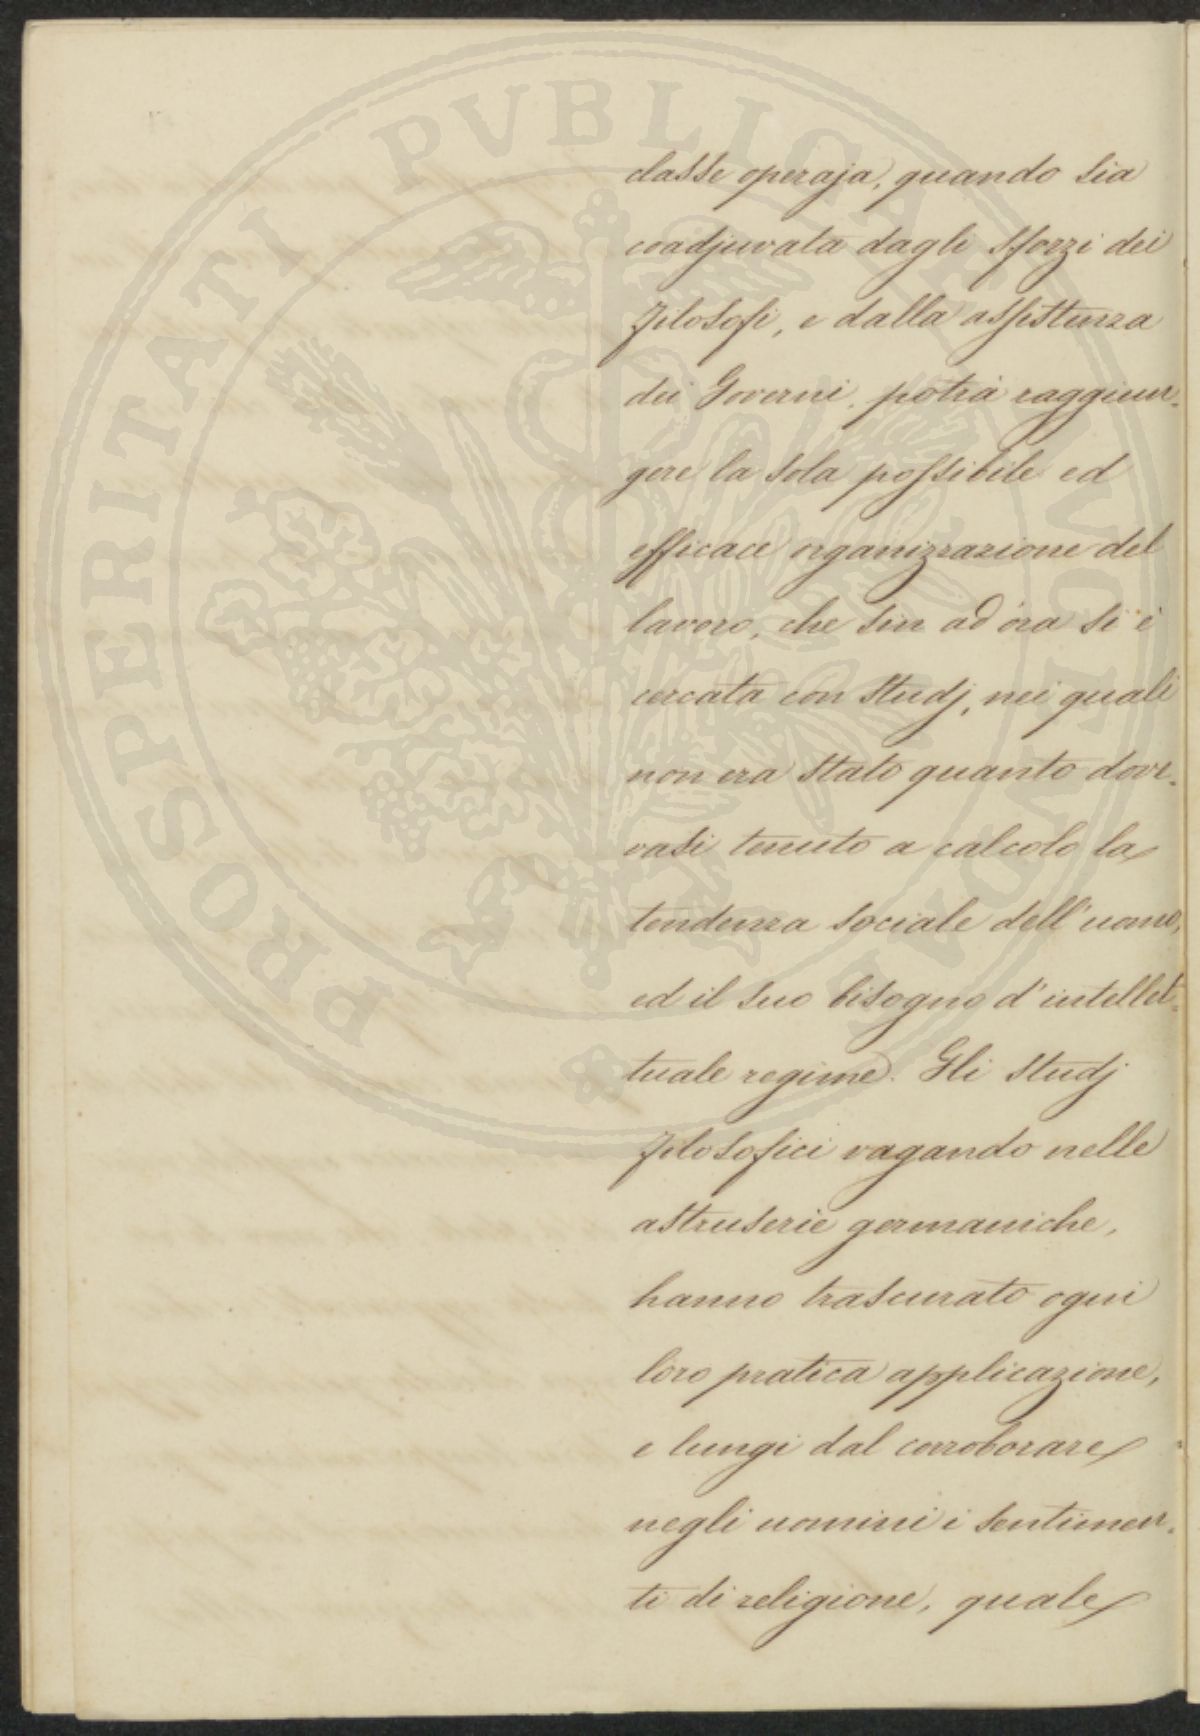 classe operaja, quando sia
coadjuvata dagli sforzi dei
filosofi, e dalla assistenza
dei Governi, potrà raggiun-
gere la sola possibile ed
efficace organizzazione del
lavoro, che sin ad ora si è
cercata con studj, nei quali
non era stato quanto dove-
vasi tenuto a calcolo la
tendenza sociale dell'uomo,
ed il suo bisogno d'intellet-
tuale regime. Gli studj
filosofici vagando nelle
astruserie germaniche,
hanno trascurato ogni
loro pratica applicazione,
e lungi dal corroborare
negli uomini i sentimen-
ti di religione, quale
PROSPERITATI PVBLICAE